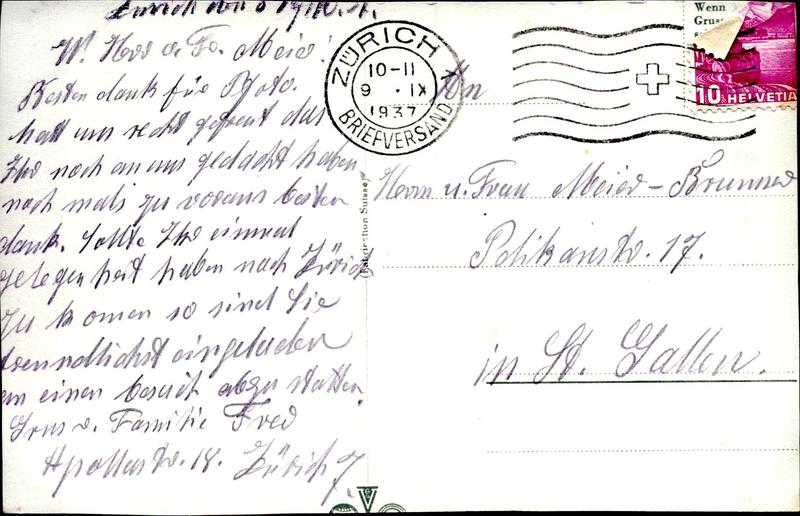 Zürich den
W. Herr u. Fr. Meier!
Besten dank für Photo.
hatt uns recht gefreut das
Ihr noch an uns gedacht haben
noch mals zu voraus besten
dank. Sollte Ihr einmal
gelegenheit haben nach Zürich
zu komen so sind Sie
freundlichst eingeladen
um einen besuch abzu statten.
Grus v. Familie Fred
Apollostr. 18. Zürich 7.
(Fabrication Suisse)
ZÜRICH 1
10-11
9 . IX
1937
BRIEFVERSAND
Wenn
Grus
10 HELVETIA
An
Herrn u. Frau Meier-Brunner
Pelikanstr. 17.
in St. Gallen.